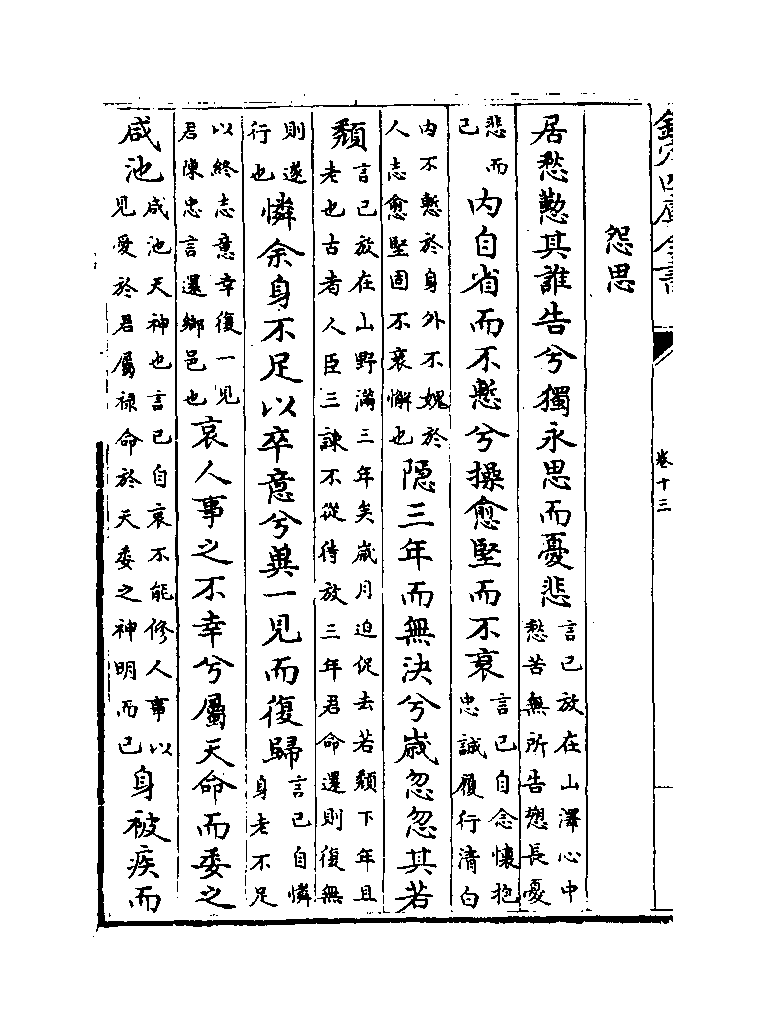 欽定四庫全書
卷十三
怨思
居愁懃其誰告兮獨永思而憂悲言已放在山澤心中愁苦無所告愬長憂
悲而已內自省而不慙兮操愈堅而不衰言已自念懷抱忠誠履行清白
内不慙於身外不媿於人志愈堅固不衰懈也隠三年而無決兮歳忽忽其若
頽言已放在山野滿三年矣歳月迫促去若頽下年且老也古者人臣三諫不從待放三年君命還則復無
則遂行也憐余身不足以卒意兮兾一見而復歸言已自憐身老不足
以終志意幸復一見君陳忠言還鄉邑也哀人事之不幸兮屬天命而委之
咸池咸池天神也言已自哀不能修人事以見愛於君屬禄命於天委之神明而已身被疾而